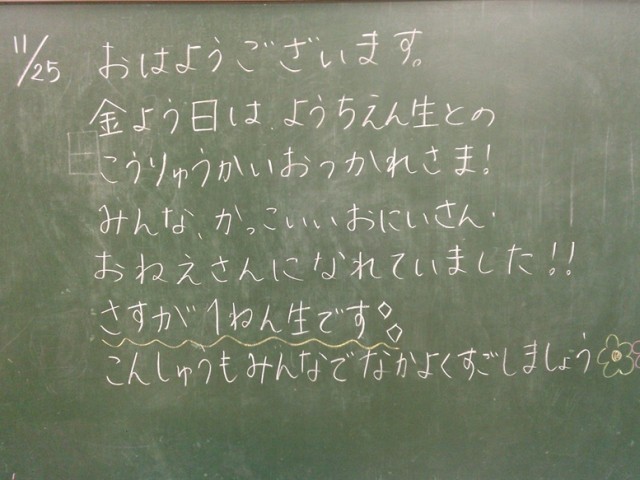 11/25
おはようございます。
金よう日は、ようちえん生との
こうりゅうかいおつかれさま!
みんな、かっこいいおにいさん・
おねえさんになれていました!!
さすが1ねん生です
こんしゅうもみんなでなかよくすごしましょう